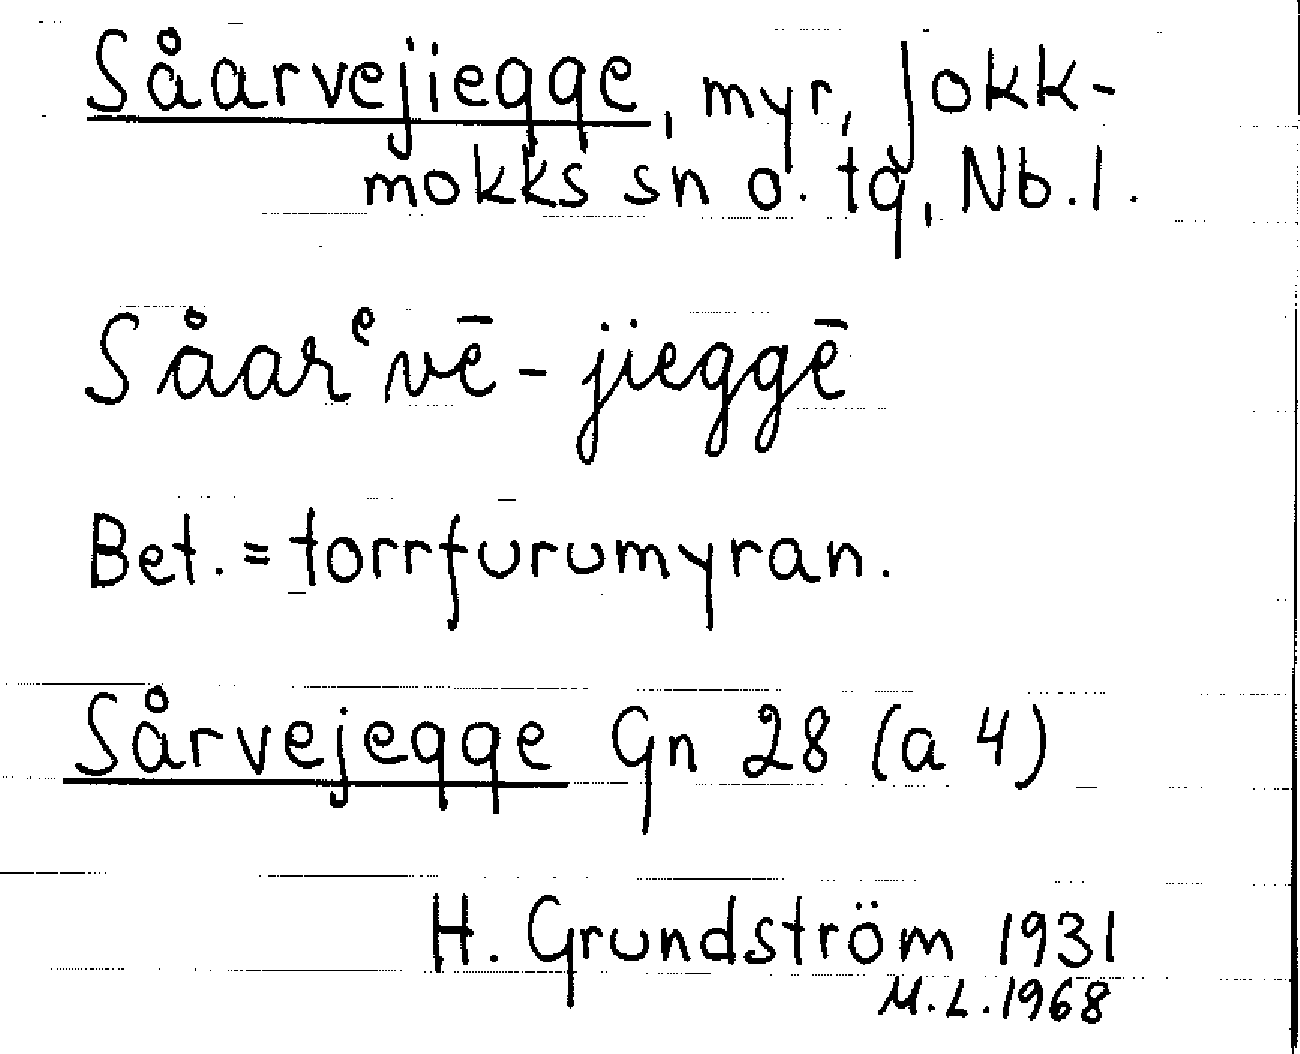 Såarvejiegge, myr, Jokk-
mokks sn o. tg, Nb.l.
Såarᵉvē-jieggē
Bet. = torrfurumyran.
Sårvejegge Gn 28 (a 4)
H. Grundström 1931
M.L.1968